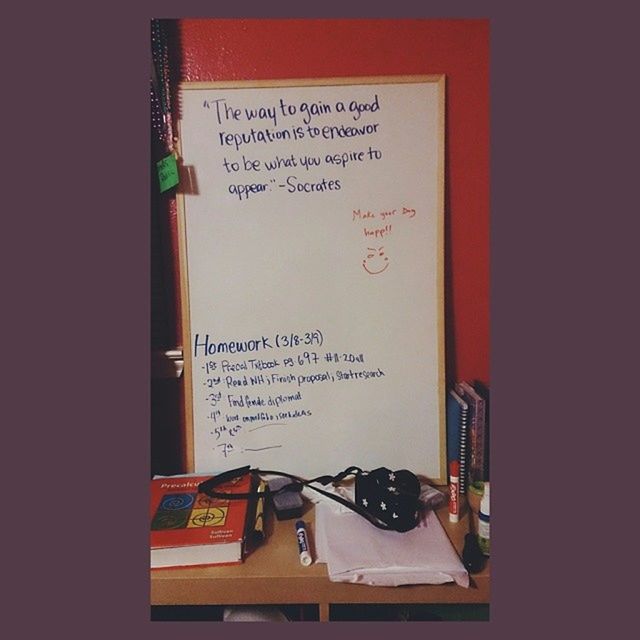 "The way to gain a good
reputation is to endeavor
to be what you aspire to
appear." -Socrates
Make your Day
happ!!
Homework (3/8-3/9)
-1st Precal Txtbook pg 697 #11-20 all
-2nd: Read NH; Finish proposal; Start research
-3rd Find female diplomat
-4th
-5th
7th
Precalculus
Sullivan
Sullivan
EXPO